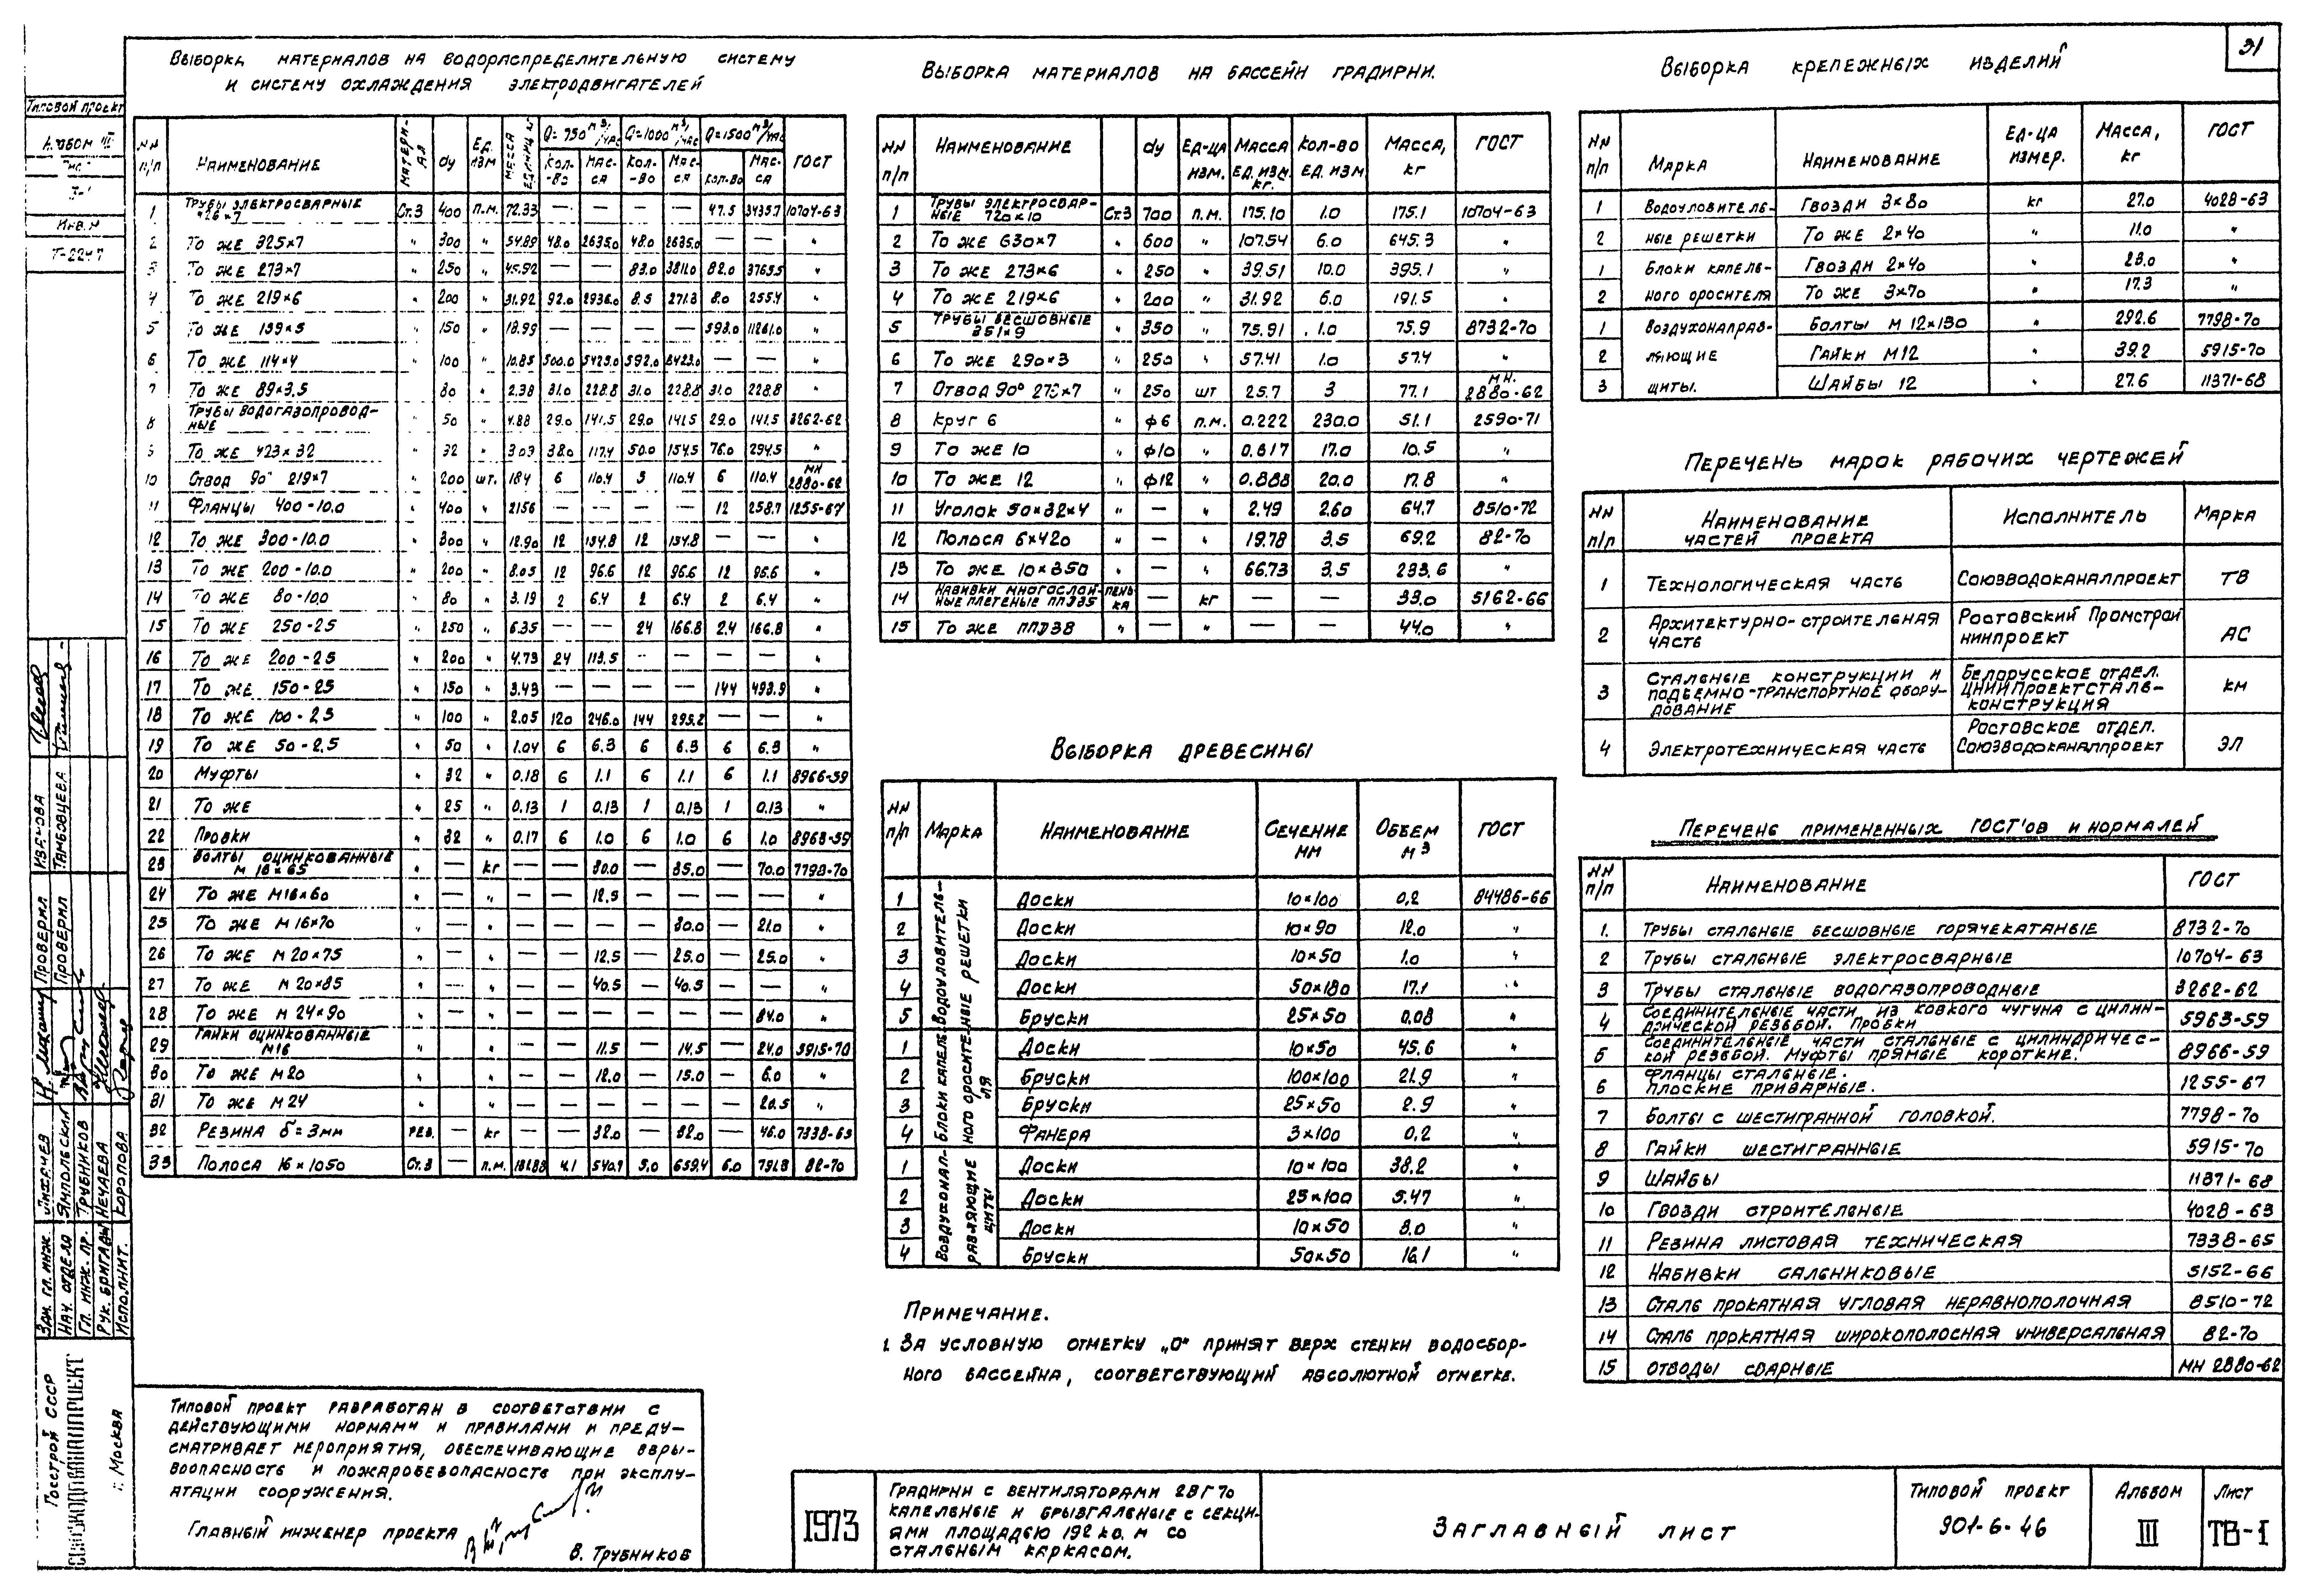 31
Типовой проект
Альбом III
Инв. №
Т-2247
Выборка материалов на водораспределительную систему
и систему охлаждения электродвигателей
НН п/п | Наименование | Материал | dy | Ед. изм | Масса единиц. кг | Q=750 м³/час | Q=1000 м³/час | Q=1500 м³/час | ГОСТ
Кол-во | Масса | Кол-во | Масса | Кол-во | Масса
1 | Трубы электросварные 426×7 | Ст.3 | 400 | п.м. | 72.33 | — | — | — | — | 47.5 | 3435.7 | 10704-63
2 | То же 325×7 | " | 300 | " | 54.89 | 48.0 | 2635.0 | 48.0 | 2635.0 | — | — | "
3 | То же 273×7 | " | 250 | " | 45.92 | — | — | 83.0 | 3811.0 | 82.0 | 3765.5 | "
4 | То же 219×6 | " | 200 | " | 31.92 | 92.0 | 2936.0 | 8.5 | 271.3 | 8.0 | 255.4 | "
5 | То же 159×5 | " | 150 | " | 18.99 | — | — | — | — | 593.0 | 11261.0 | "
6 | То же 114×4 | " | 100 | " | 10.85 | 500.0 | 5425.0 | 592.0 | 6423.0 | — | — | "
7 | То же 89×3.5 | " | 80 | " | 7.38 | 31.0 | 228.8 | 31.0 | 228.8 | 31.0 | 228.8 | "
8 | Трубы водогазопроводные | " | 50 | " | 4.88 | 29.0 | 141.5 | 29.0 | 141.5 | 29.0 | 141.5 | 3262-62
9 | То же 423×32 | " | 32 | " | 3.09 | 38.0 | 117.4 | 50.0 | 154.5 | 76.0 | 234.5 | "
10 | Отвод 90° 219×7 | " | 200 | шт. | 18.4 | 6 | 110.4 | 6 | 110.4 | 6 | 110.4 | МН 2880-62
11 | Фланцы 400-10.0 | " | 400 | " | 21.56 | — | — | — | — | 12 | 258.7 | 1255-67
12 | То же 300-10.0 | " | 300 | " | 12.90 | 12 | 154.8 | 12 | 154.8 | — | — | "
13 | То же 200-10.0 | " | 200 | " | 8.05 | 12 | 96.6 | 12 | 96.6 | 12 | 96.6 | "
14 | То же 80-10.0 | " | 80 | " | 3.19 | 2 | 6.4 | 2 | 6.4 | 2 | 6.4 | "
15 | То же 250-2.5 | " | 250 | " | 6.35 | — | — | 24 | 166.8 | 24 | 166.8 | "
16 | То же 200-2.5 | " | 200 | " | 4.73 | 24 | 113.5 | — | — | — | — | "
17 | То же 150-2.5 | " | 150 | " | 3.43 | — | — | — | — | 144 | 493.9 | "
18 | То же 100-2.5 | " | 100 | " | 2.05 | 120 | 246.0 | 144 | 295.2 | — | — | "
19 | То же 50-2.5 | " | 50 | " | 1.04 | 6 | 6.3 | 6 | 6.3 | 6 | 6.3 | "
20 | Муфты | " | 32 | " | 0.18 | 6 | 1.1 | 6 | 1.1 | 6 | 1.1 | 8966-59
21 | То же | " | 25 | " | 0.13 | 1 | 0.13 | 1 | 0.13 | 1 | 0.13 | "
22 | Пробки | " | 32 | " | 0.17 | 6 | 1.0 | 6 | 1.0 | 6 | 1.0 | 8963-59
23 | Болты оцинкованные М 16×65 | " | — | кг | — | — | 80.0 | — | 85.0 | — | 70.0 | 7798-70
24 | То же М16×60 | " | — | " | — | — | 12.5 | — | — | — | — | "
25 | То же М 16×70 | " | — | " | — | — | — | — | 30.0 | — | 21.0 | "
26 | То же М 20×75 | " | — | " | — | — | 12.5 | — | 25.0 | — | 25.0 | "
27 | То же М 20×85 | " | — | " | — | — | 40.5 | — | 40.5 | — | — | "
28 | То же М 24×90 | " | — | " | — | — | — | — | — | — | 84.0 | "
29 | Гайки оцинкованные М16 | " | — | " | — | — | 11.5 | — | 14.5 | — | 24.0 | 5915-70
30 | То же М20 | " | — | " | — | — | 12.0 | — | 15.0 | — | 6.0 | "
31 | То же М24 | " | | " | — | — | — | — | — | — | 20.5 | "
32 | Резина δ=3мм | рез. | — | кг | — | — | 32.0 | — | 32.0 | — | 46.0 | 7338-65
33 | Полоса 16×1050 | Ст.3 | — | п.м. | 131.88 | 4.1 | 540.7 | 5.0 | 659.4 | 6.0 | 791.3 | 82-70
Выборка материалов на бассейн градирни.
НН п/п | Наименование | | dy | Ед-ца изм. | Масса ед. изм. кг. | Кол-во ед. изм | Масса, кг | ГОСТ
1 | Трубы электросварные 720×10 | Ст3 | 700 | п.м. | 175.10 | 1.0 | 175.1 | 10704-63
2 | То же 630×7 | " | 600 | " | 107.54 | 6.0 | 645.3 | "
3 | То же 273×6 | " | 250 | " | 39.51 | 10.0 | 395.1 | "
4 | То же 219×6 | " | 200 | " | 31.92 | 6.0 | 191.5 | "
5 | Трубы бесшовные 351×9 | " | 350 | " | 75.91 | 1.0 | 75.9 | 8732-70
6 | То же 290×3 | " | 250 | " | 57.41 | 1.0 | 57.4 | "
7 | Отвод 90° 273×7 | " | 250 | шт | 25.7 | 3 | 77.1 | МН. 2880-62
8 | Круг 6 | " | ф6 | п.м. | 0.222 | 230.0 | 51.1 | 2590-71
9 | То же 10 | " | ф10 | " | 0.617 | 17.0 | 10.5 | "
10 | То же 12 | " | ф12 | " | 0.888 | 20.0 | 17.8 | "
11 | Уголок 50×32×4 | " | — | " | 2.49 | 26.0 | 64.7 | 8510-72
12 | Полоса 6×420 | " | — | " | 19.78 | 3.5 | 69.2 | 82-70
13 | То же 10×850 | " | — | " | 66.73 | 3.5 | 233.6 | "
14 | Набивки многослойные плетеные ПП335 | пенька | — | кг | — | — | 33.0 | 5152-66
15 | То же ПП338 | " | — | " | — | — | 44.0 | "
Выборка древесины
НН п/п | Марка | Наименование | Сечение мм | Объем м³ | ГОСТ
Водоуловительные решетки
1 | Доски | 10×100 | 0.2 | 84486-66
2 | Доски | 10×90 | 12.0 | "
3 | Доски | 10×50 | 1.0 | "
4 | Доски | 50×180 | 17.1 | "
5 | Бруски | 25×50 | 0.08 | "
Блоки капельного оросителя
1 | Доски | 10×50 | 45.6 | "
2 | Бруски | 100×100 | 21.9 | "
3 | Бруски | 25×50 | 2.9 | "
4 | Фанера | 3×100 | 0.2 | "
Воздухонаправляющие щиты
1 | Доски | 10×100 | 38.2 | "
2 | Доски | 25×100 | 5.47 | "
3 | Доски | 10×50 | 8.0 | "
4 | Бруски | 50×50 | 16.1 | "
Примечание.
1. За условную отметку „0" принят верх стенки водосбор-
ного бассейна, соответствующий абсолютной отметке.
Выборка крепежных изделий
НН п/п | Марка | Наименование | Ед-ца измер. | Масса, кг | ГОСТ
1 | Водоуловитель- | Гвозди 3×80 | кг | 27.0 | 4028-63
2 | ные решетки | То же 2×40 | " | 11.0 | "
1 | Блоки капель- | Гвозди 2×40 | " | 28.0 | "
2 | ного оросителя | То же 3×70 | " | 17.3 | "
1 | Воздухонаправ- | Болты М 12×130 | " | 292.6 | 7798-70
2 | ляющие | Гайки М12 | " | 39.2 | 5915-70
3 | щиты. | Шайбы 12 | " | 27.6 | 11371-68
Перечень марок рабочих чертежей
НН п/п | Наименование частей проекта | Исполнитель | Марка
1 | Технологическая часть | Союзводоканалпроект | ТВ
2 | Архитектурно-строительная часть | Ростовский Промстрой НИИпроект | АС
3 | Стальные конструкции и подъемно-транспортное оборудование | Белорусское отдел. ЦНИИПроектстальконструкция | КМ
4 | Электротехническая часть | Ростовское отдел. Союзводоканалпроект | ЭЛ
Перечень примененных ГОСТ'ов и нормалей
НН п/п | Наименование | ГОСТ
1. | Трубы стальные бесшовные горячекатаные | 8732-70
2 | Трубы стальные электросварные | 10704-63
3 | Трубы стальные водогазопроводные | 3262-62
4 | Соединительные части из ковкого чугуна с цилиндрической резьбой. Пробки | 5963-59
5 | Соединительные части стальные с цилиндрической резьбой. Муфты прямые короткие. | 8966-59
6 | Фланцы стальные. Плоские приварные. | 1255-67
7 | Болты с шестигранной головкой. | 7798-70
8 | Гайки шестигранные | 5915-70
9 | Шайбы | 11371-68
10 | Гвозди строительные | 4028-63
11 | Резина листовая техническая | 7338-65
12 | Набивки сальниковые | 5152-66
13 | Сталь прокатная угловая неравнополочная | 8510-72
14 | Сталь прокатная широкополосная универсальная | 82-70
15 | Отводы сварные | МН 2880-62
Типовой проект разработан в соответствии с
действующими нормами и правилами и преду-
сматривает мероприятия, обеспечивающие взры-
воопасность и пожаробезопасность при эксплу-
атации сооружения.
Главный инженер проекта
В. Трубников
Зам. гл. инж. Лихачев
Нач. отдела Ямпольский
Гл. инж. пр. Трубников
Рук. бригады Нечаева
Исполнит. Коропова
Проверил
Проверил Тамбовцева
Госстрой СССР
Союзводоканалпроект
г. Москва
1973
Градирни с вентиляторами 2ВГ70
капельные и брызгальные с секци-
ями площадью 192 кв. м со
стальным каркасом.
Заглавный лист
Типовой проект
901-6-46
Альбом
III
Лист
ТВ-1